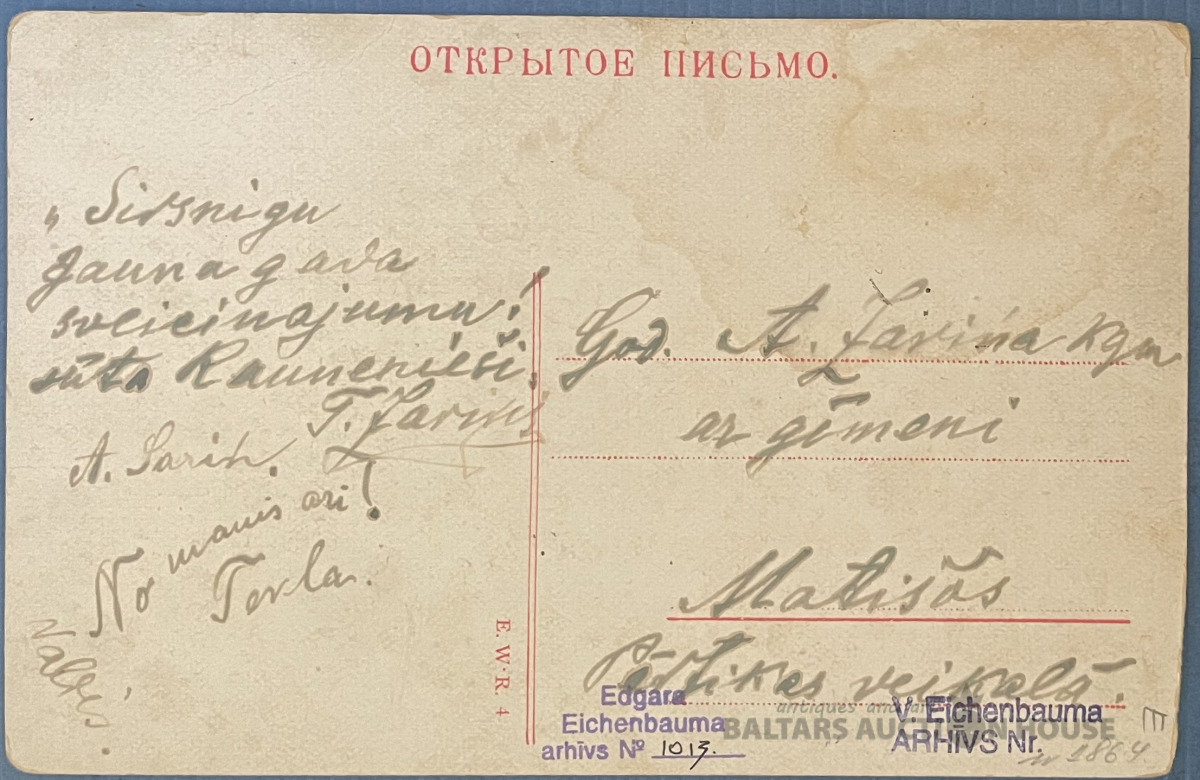 ОТКРЫТОЕ ПИСЬМО.
„Sirsnigu
Jauna gada
sveicinajumu!
sūta Raunenieši.
T. Zariņš
A. Sarin.
No manis ari!
Tekla.
Valtis.
God. A. Zariņa kgm
ar ģimeni
Matišōs
Pārtikas veikalā.
E. W. R. 4
Edgara
Eichenbauma
arhīvs Nº 1013.
V. Eichenbauma
ARHĪVS Nr.
1864
antiques and
BALTARS AUCTION HOUSE